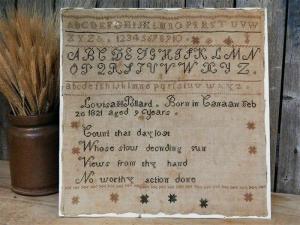 ABCDEFGHIJKLMNOPQRSTUVW
XYZ&. 1234567890.
ABCDEFGHIJKLMN
OPQRSTUVWXYZ.
abcdefghijklmnopqrstuvwxyz.
Louisa Pollard. Born in Canaan Feb
20 1821 aged 9 years.
Count that day lost
Whose slow decending sun
Views from thy hand
No worthy action done